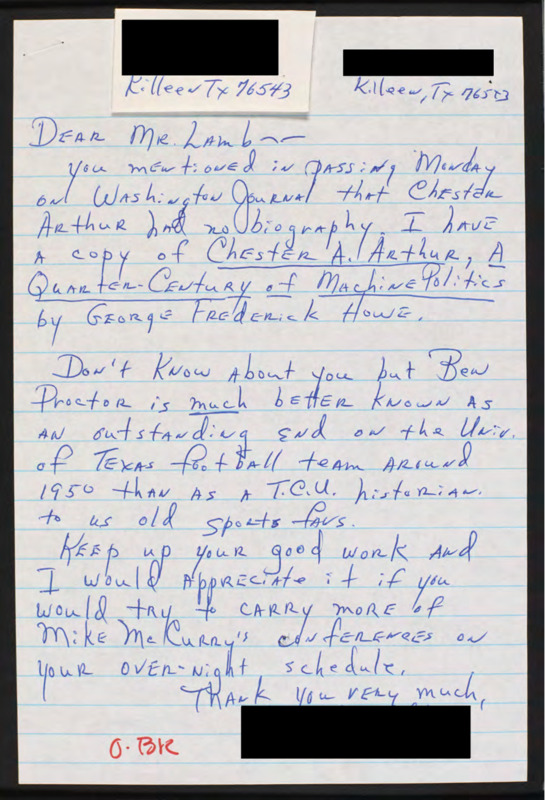 Killeen Tx 76543
Killeen, Tx 76543
Dear Mr. Lamb —
You mentioned in passing Monday
on Washington Journal that Chester
Arthur had no biography. I have
a copy of Chester A. Arthur, A
Quarter-Century of Machine Politics
by George Frederick Howe.
Don't know about you but Ben
Proctor is much better known as
an outstanding end on the Univ.
of Texas football team around
1950 than as a T.C.U. historian.
to us old sports fans.
Keep up your good work and
I would appreciate it if you
would try to carry more of
Mike McCurry's conferences on
your over-night schedule.
Thank you very much,
O. BK